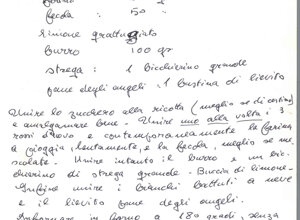 fecola : 50 "
limone grattugiato
burro 100 gr
strega : 1 bicchierino grande
pane degli angeli . 1 bustina di lievito
Unire lo zucchero alla ricotta (meglio se di cestino)
e amalgamare bene. Unire uno alla volta i 3
rossi d'uovo e contemporaneamente la farina
a pioggia, lentamente, e la fecola, meglio se me
scolate. Unire intanto il burro e un bic
chierino di strega grande. Buccia di limone.
Infine unire i bianchi battuti a neve
e il lievito pane degli angeli.
Infornare in forno a 180 gradi, senza